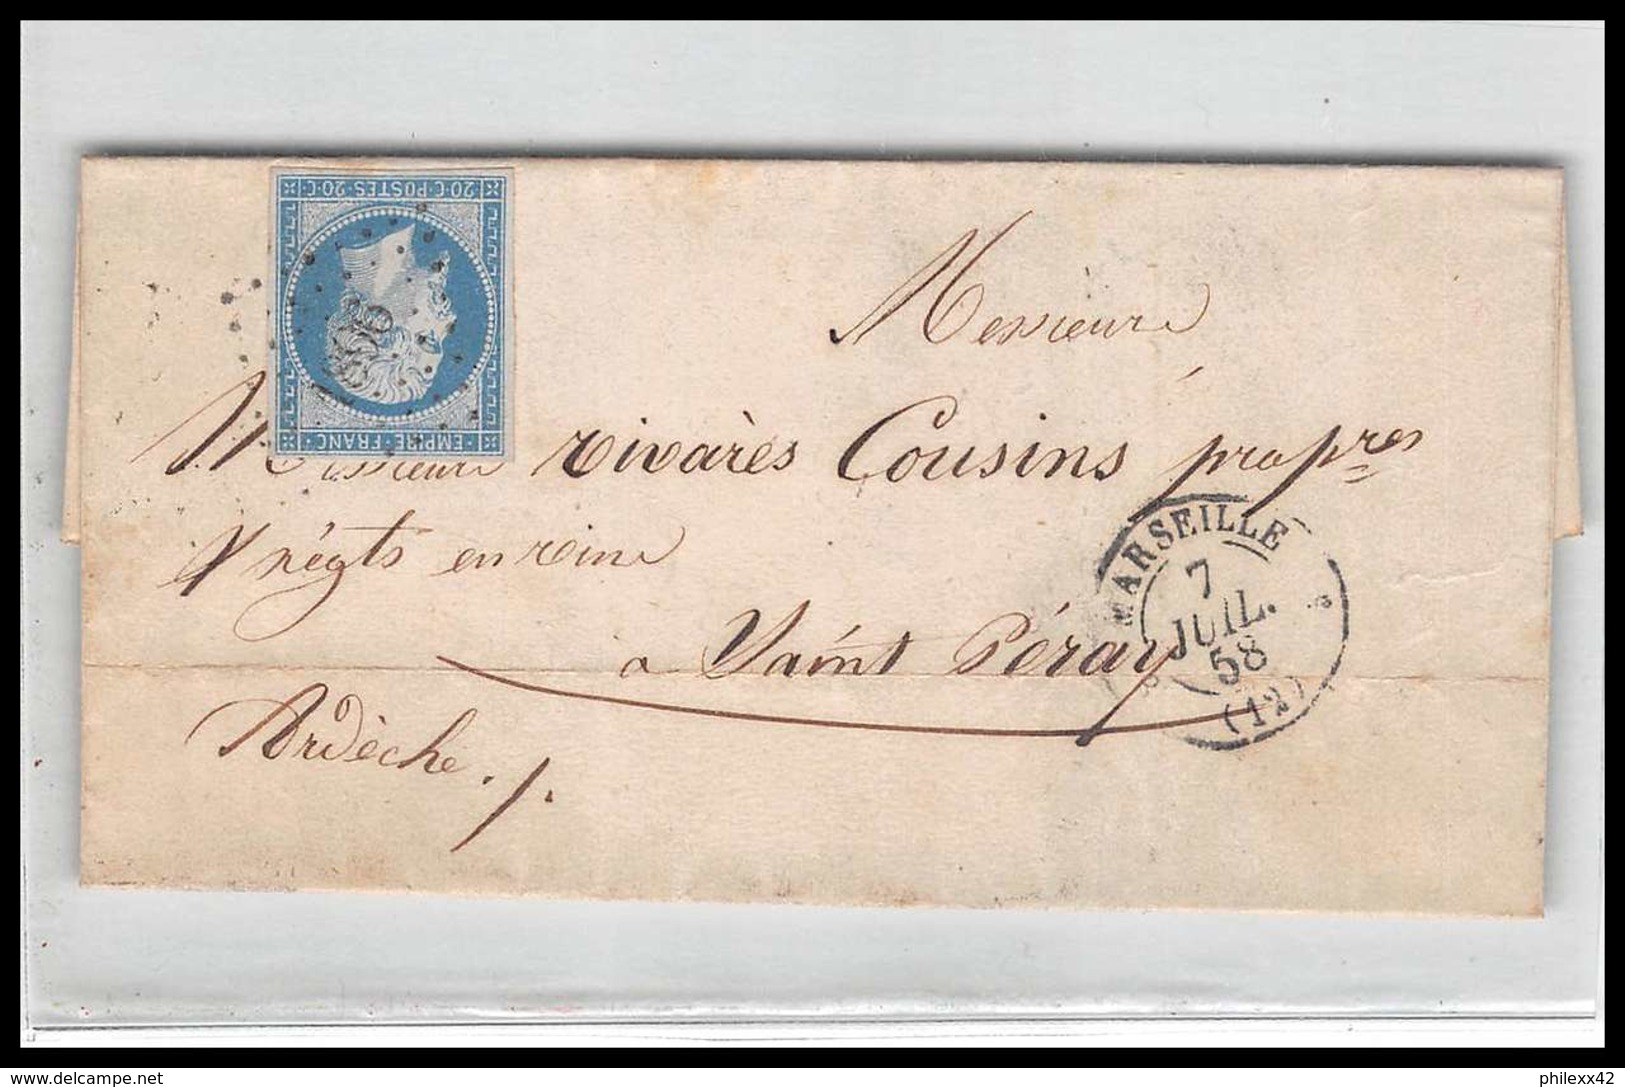 20·C·POSTES·20·C
EMPIRE·FRANC·
Messieurs
Messieurs Rivarès Cousins propres
& négts en vins
MARSEILLE
7
JUIL.
58
(12)
à Saint Péray
Ardèche
delcampe.net
philexx42